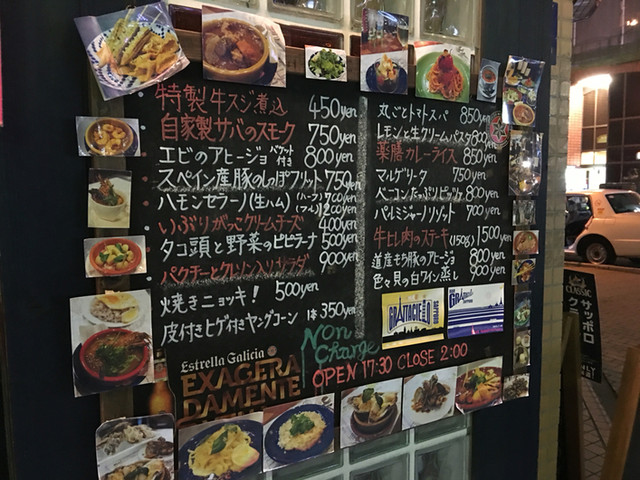 特製牛スジ煮込 450yen
自家製サバのスモーク 750yen
エビのアヒージョ バケット付き 800yen
スペイン産豚のしっぽフリット 750yen
ハモンセラーノ(生ハム) (ハーフ) 700yen
1200yen
いぶりがっこクリームチーズ 400yen
タコ頭と野菜のピピラーナ 500yen
パクチーとクレソン入りサラダ 900yen
焼きニョッキ! 500yen
皮付きヒゲ付きヤングコーン 1本 350yen
丸ごとトマトスパ 850yen
レモンと生クリームパスタ 800yen
薬膳カレーライス 850yen
マルゲリータ 750yen
ベーコンたっぷりピッツァ 800yen
パルミジャーノリゾット 700yen
牛ヒレ肉のステーキ (150g) 1500yen
道産もち豚のアヒージョ 800yen
色々貝の白ワイン蒸し 900yen
Estrella Galicia
EXAGERA
DAMENTE
Non
Charge
OPEN 17:30 CLOSE 2:00
CLASSIC
サッポロ
クラ